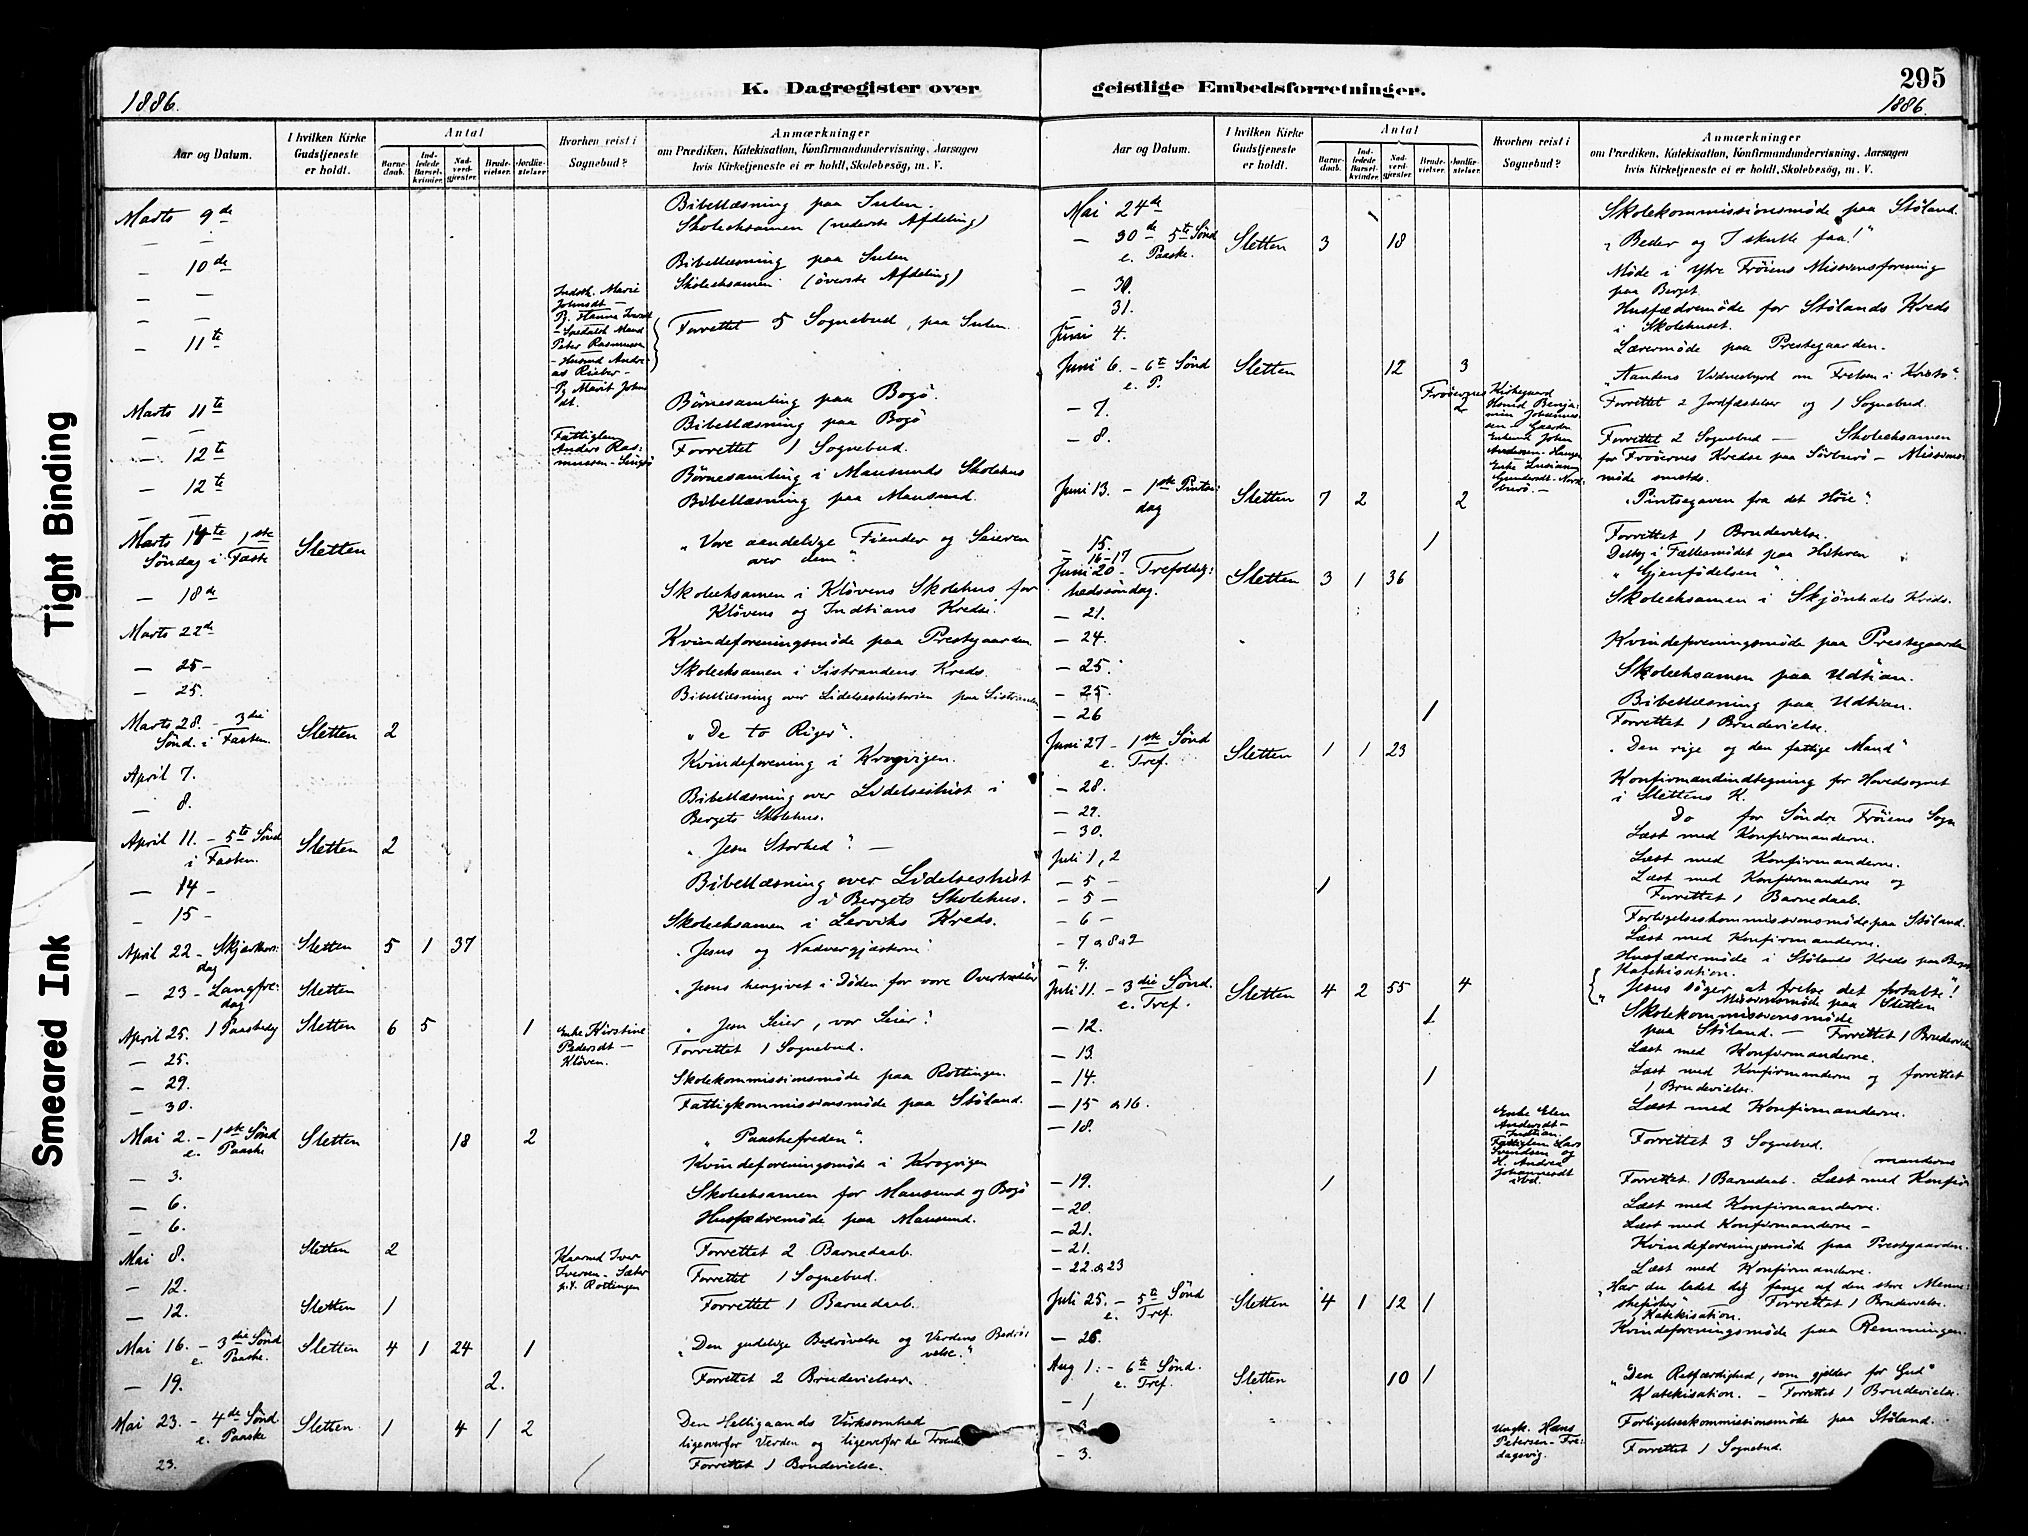 Tight Binding
Smeared Ink
1886.
K. Dagregister over
Aar og Datum.
I hvilken Kirke Gudstjeneste er holdt.
Antal
Barnedaab.
Indledede Barselkvinder.
Nadverdgjester.
Brudevielser.
Jordfæstelser.
Hvorhen reist i Sognebud?
Anmærkninger
om Prædiken, Katekisation, Konfirmandundervisning, Aarsagen
hvis Kirketjeneste ei er holdt, Skolebesøg, m. V.
Marts 9de Bibellæsning paa Sulen.
— — Skoleeksamen (nederste Afdeling)
— 10de Bibellæsning paa Sulen
— — Skoleeksamen (øverste Afdeling)
— 11te Forrettet 5 Sognebud, paa Sulen.
Peter Rasmussen
Marts 11te Børnesamling paa Bogø.
— — Bibellæsning paa Bogø
— 12te Fattiglem Anders Rasmussen Forrettet 1 Sognebud.
— 12te Børnesamling i Mausunds Skolehus
— — Bibellæsning paa Mausund.
Marts 14te 1ste Søndag i Faste Sletten „Vore aandelige Fiender og Seieren
over dem".
— 18de Skoleeksamen i Kløvens Skolehus for
Kløvens og Indtians Kredse.
Marts 22de Kvindeforeningsmøde paa Prestegaarden.
— 25 - Skoleeksamen i Sistrandens Kreds.
— 25. Bibellæsning over Lidelseshistorien paa Sistranden
Marts 28. - 3die Sønd. i Fasten. Sletten 2 „De to Riger".
April 7. Kvindeforening i Krogvigen.
— 8. Bibellæsning over Lidelseshist i
Bergets Skolehus.
April 11. - 5te Sønd i Fasten. Sletten 2 „Jesu Storhed". —
— 14 - Bibellæsning over Lidelseshist
i Bergets Skolehus.
— 15 - Skoleeksamen i Lerviks Kreds.
April 22 - Skjærthorsdag Sletten 5 1 37 „Jesus og Nadvergjæsterne"
— 23 - Langfredag Sletten „Jesus hengivet i Døden for vore Overtrædelser
April 25. 1 Paaskedag Sletten 6 5 1 Enke Kirstine Pedersdt — Kløven. „Jesu Seier, vor Seier"
— 25. Forrettet 1 Sognebud.
— 29. Skolekommissionsmøde paa Rottingen.
— 30. Fattigkommissionsmøde paa Støland.
Mai 2. - 1ste Sønd e. Paaske Sletten 18 2 „Paaskefreden".
— 3. Kvindeforeningsmøde i Krogvigen
— 6. Skoleeksamen for Mausund og Bogø
— 6. Husfædremøde paa Mausund.
Mai 8. Sletten 2 Forrettet 2 Barnedaab.
— 12. Iver Iversen - Sæter p.t. Rottingen Forrettet 1 Sognebud.
— 12. Sletten 1 Forrettet 1 Barnedaab.
Mai 16. - 3die Sønd e. Paaske. Sletten 4 1 24 1 „Den gudelige Bedrøvelse og Verdens Bedrø-
velse."
— 19. 2. Forrettet 2 Brudevielser
Mai 23. - 4de Sønd e. Paaske Sletten 1 4 1 2 Den Helligaands Virksomhed
ligeoverfor Verden og ligeoverfor de Troende
23. Forrettet 1 Brudevielse.
geistlige Embedsforretninger.
295
1886.
Aar og Datum.
I hvilken Kirke Gudstjeneste er holdt.
Antal
Barnedaab.
Indledede Barselkvinder.
Nadverdgjester.
Brudevielser.
Jordfæstelser.
Hvorhen reist i Sognebud?
Anmærkninger
om Prædiken, Katekisation, Konfirmandundervisning, Aarsagen
hvis Kirketjeneste ei er holdt, Skolebesøg, m. V.
Mai 24de Skolekommissionsmøde paa Støland.
— 30de 5te Sønd e. Paaske. Sletten 3 18 „Beder og I skulle faa!"
— 30. Møde i Ytre Frøiens Missionsforening
paa Berget.
— 31. Husfædremøde for Stølands Kreds
i Skolehuset.
Juni 4. Lærermøde paa Prestegaarden.
Juni 6. - 6te Sønd e. P. Sletten 12 3 „Aandens Vidnesbyrd om Frelsen i Kristo".
— 7. Frøiernes 2 Forrettet 2 Jordfæstelser og 1 Sognebud.
— 8. Forrettet 2 Sognebud — Skoleeksamen
for Frøiernes Kredse paa Sørburø — Missions-
møde smstds.
Juni 13. - 1ste Pintsedag Sletten 7 2 2 „Pintsegaven fra det Høie"
— 15. 1 Forrettet 1 Brudevielse.
16-17 Deltog i Fællesmødet paa Hitteren
Juni 20 - Trefoldighedssøndag. Sletten 3 1 36 „Gjenfødelsen".
— 21. Skoleeksamen i Skjønhals Kreds.
— 24. Kvindeforeningsmøde paa Prestegaarden
— 25. Skoleeksamen paa Udtian.
— 25 Bibellæsning paa Udtian.
— 26 1 Forrettet 1 Brudevielse.
Juni 27 - 1ste Sønd e. Tref. Sletten 1 1 23 „Den rige og den fattige Mand"
— 28. Konfirmandindtegning for Hovedsognet
i Slettens K.
— 29. Do for Søndre Frøiens Sogn
— 30. Læst med Konfirmanderne.
Juli 1, 2 Læst med Konfirmanderne.
— 5 — Læst med Konfirmanderne og
— 5 — 1 Forrettet 1 Barnedaab.
— 6 — Forligelseskommissionsmøde paa Støland.
— 7 a 8 a 2 Læst med Konfirmanderne.
— 9. Husfædremøde i Stølands Kreds paa Berget
Katekisation.
Juli 11. - 3die Sønd. e. Tref. Sletten 4 2 55 4 „Jesus søger at frelse det fortabte!
Missionsmøde paa Sletten
— 12. 1 Skolekommissionsmøde
paa Støland. — Forrettet 1 Brudevielse
— 13. Læst med Konfirmanderne.
— 14. 1 Læst med Konfirmanderne og forrettet
1 Brudevielse.
— 15 a 16. Læst med Konfirmanderne.
— 18. Enke Elen Andersdt — Indtian. Fattiglem Lars Svendsen og Johannesdt Forrettet 3 Sognebud.
— 19. 1 Forrettet 1 Barnedaab. Læst med Konfir-
manderne
— 20. Læst med Konfirmanderne.
— 21. Læst med Konfirmanderne —
— 21. Kvindeforeningsmøde paa Prestgaarden.
— 22. a 23 Læst med Konfirmanderne.
Juli 25. - 5te Sønd e. Tref. Sletten 4 1 12 1 „Har du ladet dig fange af den store Menne-
skefisker" Forrettet 1 Brudevielse.
Katekisation.
— 26. Kvindeforeningsmøde paa Remmingen.
Aug 1. - 6te Sønd. e. Tref. Sletten 10 1 „Den Retfærdighed, som gjælder for Gud"
— 1 Katekisation. — Forrettet 1 Brudevielse.
Forligelseskommissionsmøde paa Støland.
— 3. Ungk. Hans Petersen - Fredagsvig. Forrettet 1 Sognebud.